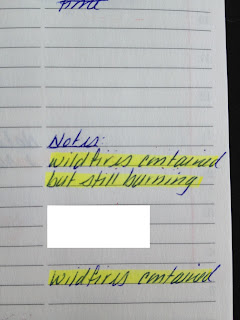 Notes:
wildfires contained
but still burning
wildfires contained